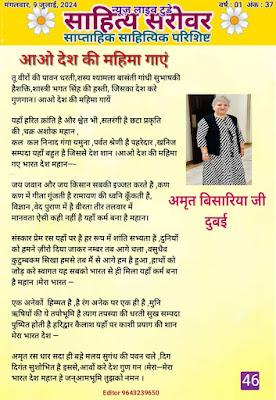 मंगलवार, 9 जुलाई, 2024
न्यूज लाइव टुडे
वर्ष : 01 अंक : 37
साहित्य सरोवर
साप्ताहिक साहित्यिक परिशिष्ट
आओ देश की महिमा गाएं
तू वीरों की पावन धरती,शस्य श्यामला बासंती गांधी सुभाषकी
हैशक्ति,शास्त्री भगत सिंह की हस्ती, जिसका देश करे
गुणगान। आओ देश की महिमा गायें
यहाँ हरित क्रांति है और श्वेत भी ,सतरंगी है छटा प्रकृति
की ,चक्र अशोक महान ,
कल कल निनाद गंगा यमुना ,पर्वत श्रेणी है पहरेदार ,खनिज
सम्पदा यहाँ बहुत है जिससे देश शान ।आओ देश की महिमा
गए भारत देश महान--
जय जवान और जय किसान सबकी इज्जत करते है ,कण
कण में गीता गूंजती है रामायण की ध्वनि कूँकती है,
विज्ञान ,वेद पुराण में है वीरता तीर तलवार में
मानवता ऐसी कही नहीं है यहाँ कर्म बना है महान।
संस्कार प्रेम रस यहाँ पर है हर रूप में शांति सभ्यता है ,दुनियाँ
को हमने ज़ीरो दिया जाकर नम्बर तब आगे चला ,वसुधैव
कुटुम्बकम सिखा हमसे तब मैं से आगे हम है हुआ ,हाथों को
जोड़ करे स्वागत यह सबको भारत से ही मिला यहाँ कर्म बना
है महान ।मेरा भारत –
एक अनेकों हिम्मत है ,है रंग अनेक पर एक ही है ,मुनि
ऋषियों की ये तपोभूमि है त्याग तपस्या की धरती सुख सम्पदा
पुष्पित होती है हरिद्वार कैलाश यहाँ पर काशी प्रयाग की शान
मेरा भारत देश –
अमृत रस धार सदा ही बहे मलय सुगंध की पवन चले ,दिग
दिगंत सुशोभित है इससे,आवों करे देश गुण गन ।मेरा–मेरा
भारत देश महान हे जन्आमभूमि तुझको नमन ।
अमृत बिसारिया जी
दुबई
46
Editor 9643239650